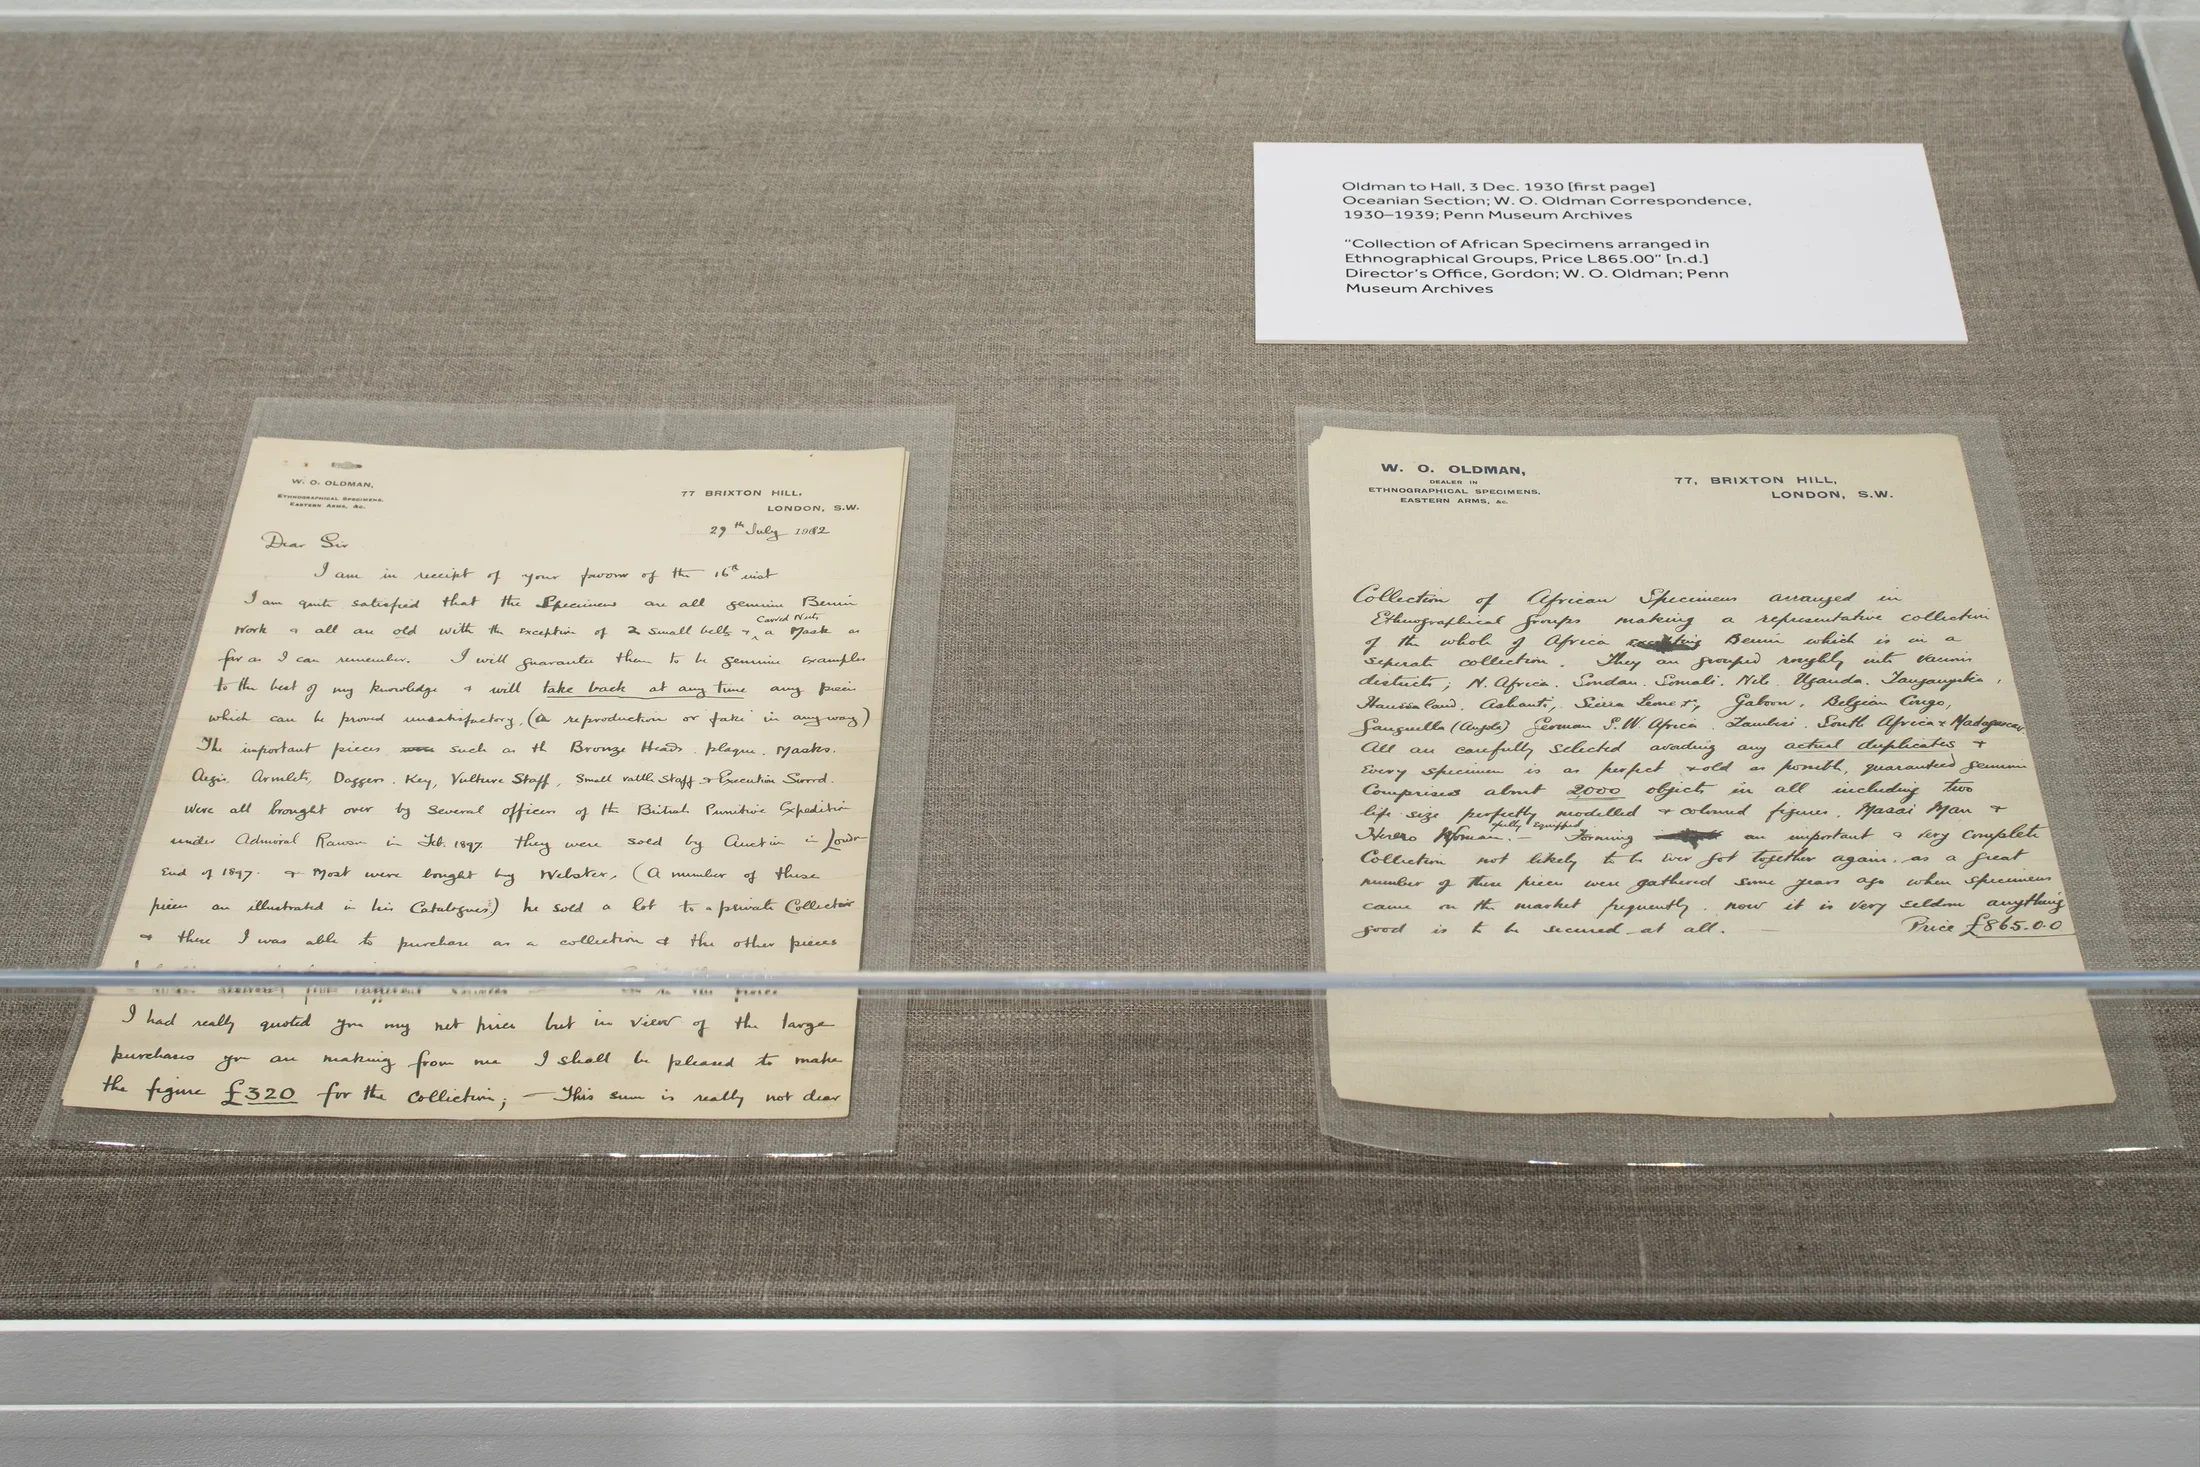 Oldman to Hall, 3 Dec. 1930 [first page]
Oceanian Section; W. O. Oldman Correspondence,
1930–1939; Penn Museum Archives
“Collection of African Specimens arranged in
Ethnographical Groups, Price L865.00” [n.d.]
Director’s Office, Gordon; W. O. Oldman; Penn
Museum Archives
W. O. OLDMAN,
ETHNOGRAPHICAL SPECIMENS,
EASTERN ARMS, &c.
77 BRIXTON HILL,
LONDON, S.W.
29th July
Dear Sir
I am in receipt of your favour of the 16th inst
I am quite satisfied that the Specimens are all genuine Benin
Carved Nuts
work & all are old with the exception of 2 small bells & a Mask as
far as I can remember. I will guarantee them to be genuine examples
to the best of my knowledge & will take back at any time any piece
which can be proved unsatisfactory, (a reproduction or fake in any way)
The important pieces such as th Bronze Heads. plaque. Masks.
Aegis, Armlets, Daggers. Key, Vulture Staff, Small rattle Staff & Execution Sword.
were all brought over by several officers of the British Punitive Expedition
under Admiral Rawson in Feb. 1897. they were sold by Auction in London
End of 1897. & Most were bought by Webster, (A number of these
pieces are illustrated in his Catalogues) he sold a lot to a private Collector
& these I was able to purchase as a collection & the other pieces
I had really quoted you my net price but in view of the large
purchases you are making from me I shall be pleased to make
the figure £320 for the collection; — This sum is really not dear
W. O. OLDMAN,
DEALER IN
ETHNOGRAPHICAL SPECIMENS,
EASTERN ARMS, &c.
77, BRIXTON HILL,
LONDON, S.W.
Collection of African Specimens arranged in
Ethnographical groups making a representative collection
of the whole of Africa excepting Benin which is in a
seperate collection. They are grouped roughly into various
districts; N. Africa. Soudan. Somali. Nile. Uganda. Tanganyika,
Haussaland. Ashanti, Sierra Leone &, Gaboon. Belgian Congo,
Ganguella (Angola) German S.W. Africa. Zambesi. South Africa & Madagascar.
All are carefully selected avoiding any actual duplicates &
Every specimen is as perfect & old as possible, guaranteed genuine
Comprises about 2,000 objects in all including two
life size perfectly modelled & coloured figures, Masai Man &
fully Equipped
Herero Woman. — Forming an important & very complete
Collection not likely to be ever got together again, as a great
number of these pieces were gathered some years ago when specimens
came on the market frequently. now it is very seldom anything
good is to be secured at all. —
Price £865.0.0